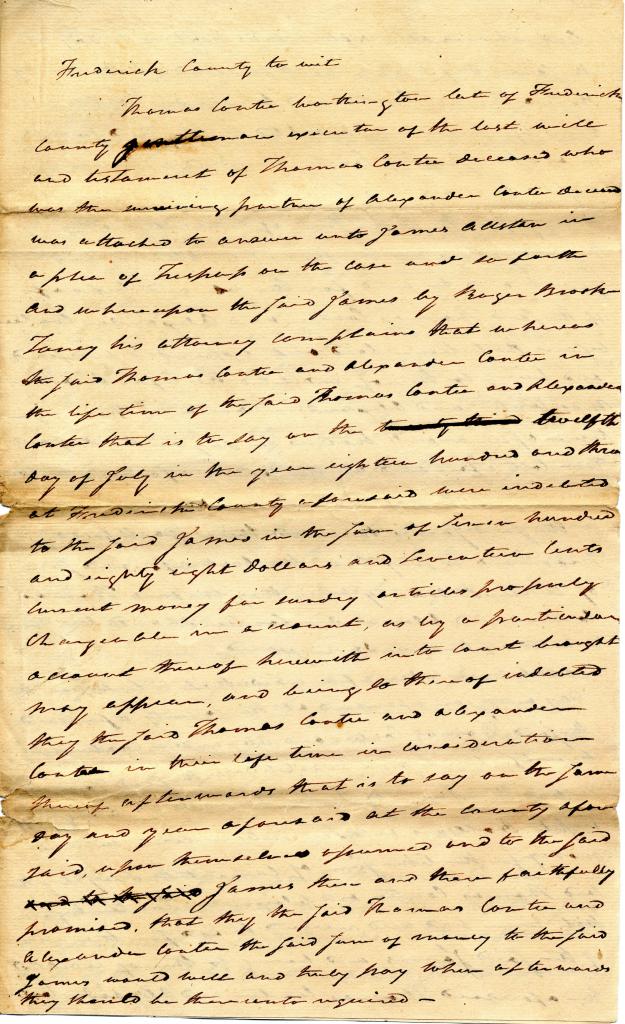 Frederick County to wit
Thomas Contee Worthington late of Frederick
County gentleman executor of the last will
and testament of Thomas Contee deceased who
was the surviving partner of Alexander Contee deceased
was attached to answer unto James Alston in
a plea of Trespass on the case and so forth
And whereupon the said James by Roger Brooke
Taney his attorney complains that whereas
the said Thomas Contee and Alexander Contee in
the life time of the said Thomas Contee and Alexander
Contee that is to say on the twenty third twelfth
day of July in the year eighteen hundred and three
at Frederick County aforesaid were indebted
to the said James in the sum of Seven hundred
and eighty eight Dollars and Seventeen Cents
Current money for sundry articles properly
Chargeable in account, as by a particular
account thereof herewith into court brought
may appear, and being so thereof indebted
they the said Thomas Contee and Alexander
Contee in their life time in consideration
thereof afterwards that is to say on the same
day and year aforesaid at the County afore
said, upon themselves assumed and to the said
and to the said James then and there faithfully
promised, that they the said Thomas Contee and
Alexander Contee the said sum of money to the said
James would well and truly pay when afterwards
they should be thereunto required —